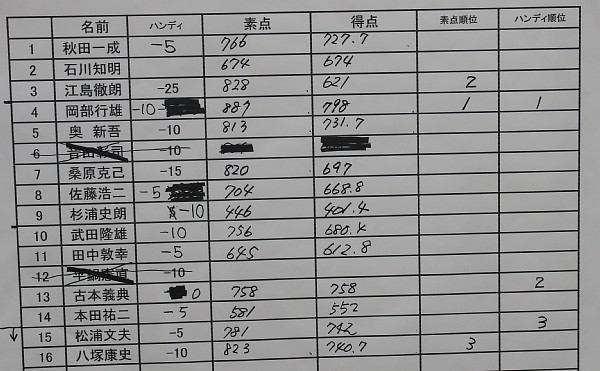 名前 ハンディ 素点 得点 素点順位 ハンディ順位
1 秋田一成 -5 766 727.7
2 石川知明 674 674
3 江島徹朗 -25 828 621 2
4 岡部行雄 -10 887 798 1 1
5 奥 新吾 -10 813 731.7
6 -10
7 桑原克己 -15 820 697
8 佐藤浩二 -5 704 668.8
9 杉浦史朗 -10 446 401.4
10 武田隆雄 -10 756 680.4
11 田中敦幸 -5 645 612.8
12 -10
13 古本義典 0 758 758 2
14 本田祐二 -5 581 552
15 松浦文夫 -5 781 742 3
16 八塚康史 -10 823 740.7 3